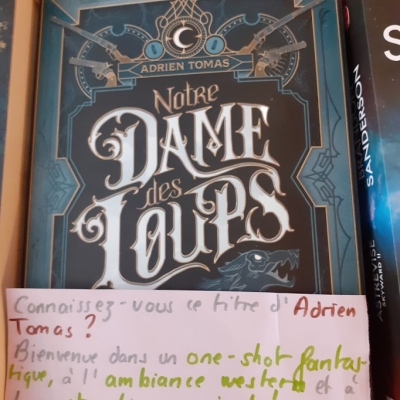 ADRIEN TOMAS
Notre
DAME
des
LOUPS
Connaissez-vous ce titre d'Adrien
Tomas ?
Bienvenue dans un one-shot fantas-
tique, à l'ambiance western et à
S
SANDERSON
ASTREVISE
SKYWARD II